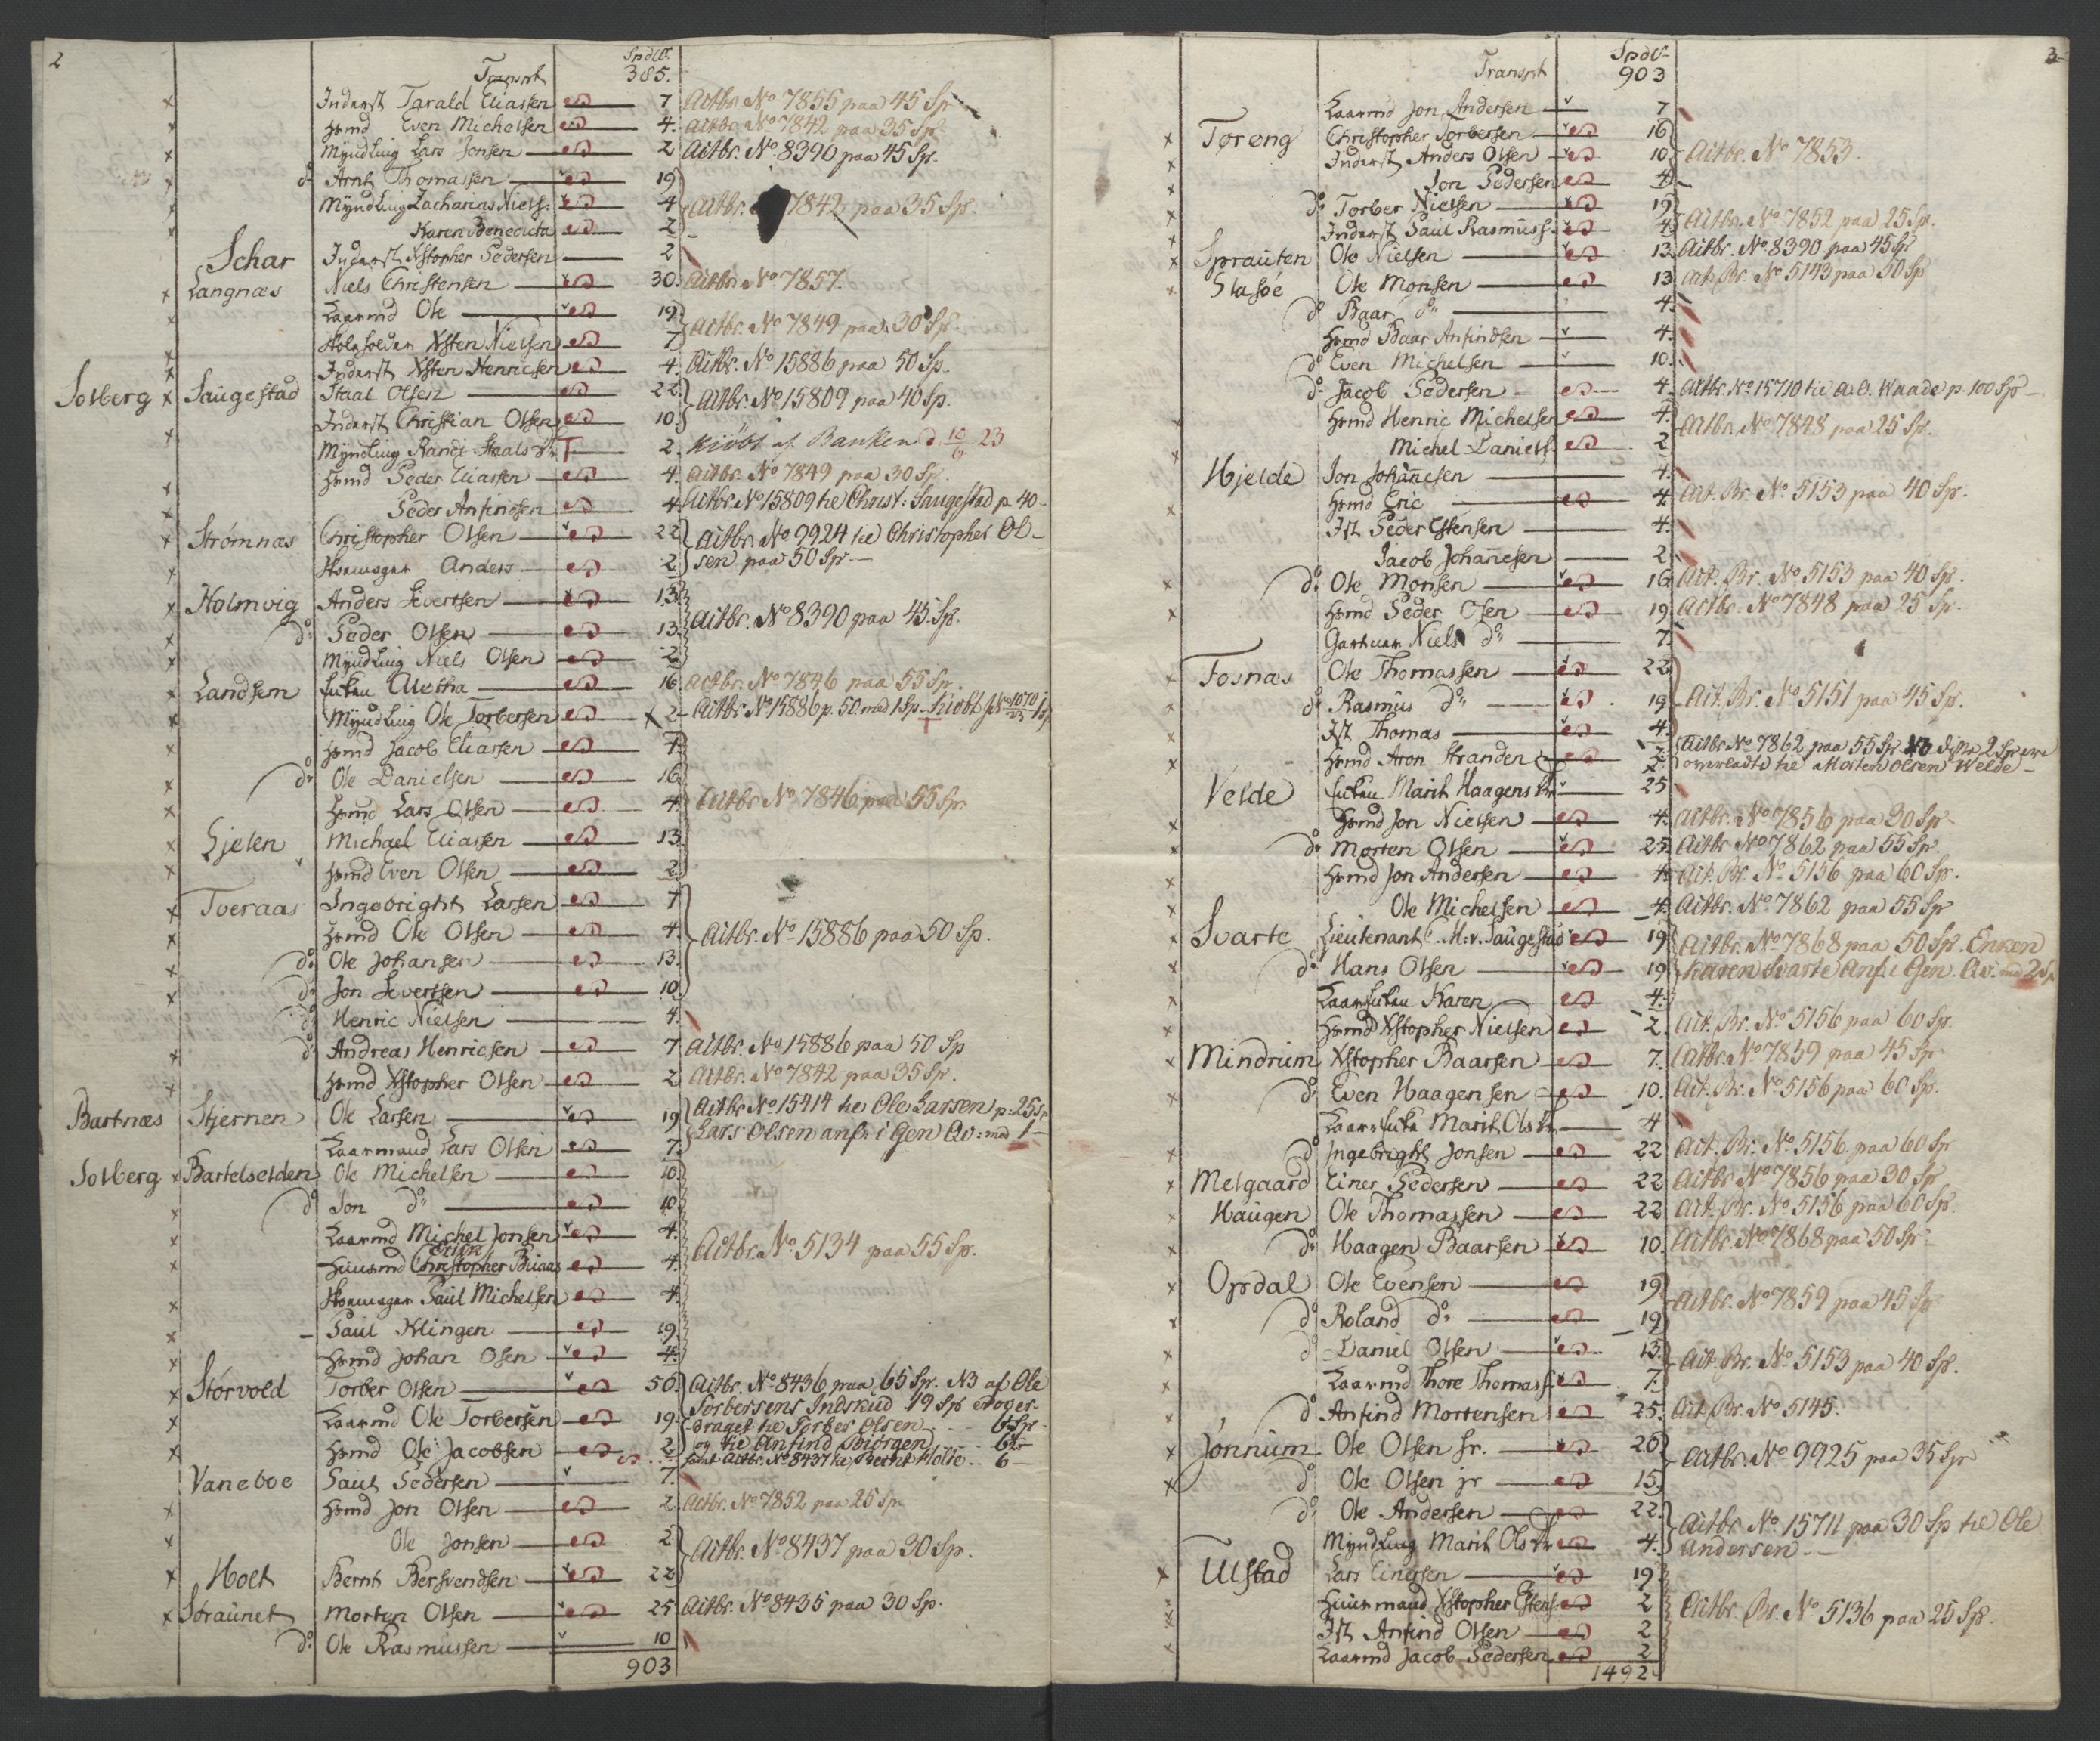 2
Spdlr.
Transprt 385.
Inderst Tarald Eliassen 7 Actbr. No 7855 paa 45 Sp
Hsmd Even Michelsen 4. Actbr. No 7842 paa 35 Sp
Myndling Lars Jonsen 2 Actbr. No 8390 paa 45 Sp.
do Arnt Thomassen 19
Myndling Zacharias Niels: 4 Actbr. 7842 paa 35 Sp.
Karen Benedicta 2
Schar Inderst Xstopher Pedersen 2
Langnæs Niels Christensen 30. Actbr. No 7857.
Kaarmd Ole 19 Actbr. No 7849 paa 30 Sp.
Xsten Nielsen 7
Inderst Xsten Henricsen 4 Actbr. No 15886 paa 50 Sp.
Solberg Saugestad Staal Olsen 22 Actbr. No 15809 paa 40 Sp.
Inderst Christian Olsen 10.
Myndling Randi Staalsdr 2. Kiöbt af Banken d. 23
Hsmd Peder Eliassen 4. Actbr. No 7849 paa 30 Sp.
Peder Anfindsen 4 Actbr No 15809 til Christ: Saugestad p. 40
Strømnæs Christopher Olsen 22 Actbr. No 9924 til Christopher Ol-
Anders 2 sen paa 50 Sp.
Holmvig Anders Severtsen 13
do Peder Olsen 13 Actbr. No 8390 paa 45 Sp.
Myndling Niels Olsen 2
Landsem Enken Aletha 16 Actbr. No 7846 paa 55 Sp.
Myndling Ole Torbersen 2 Actbr No 15886 p. 50 med 1 Sp. Kiöbt
Hsmd Jacob Eliassen 4.
do Ole Danielsen 16
Hsmd Lars Olsen 4 Actbr No 7846 paa 55 Sp.
Gjelen Michael Eliassen 13
Hsmd Even Olsen 2
Tveraas Ingebright Larsen 7
Hsmd Ole Olsen 4. Actbr. No 15886 paa 50 Sp.
do Ole Johansen 13
do Jon Severtsen 10
do Henric Nielsen 4.
do Andreas Henricsen 7 Actbr. No 15886 paa 50 Sp
Hsmd Xstopher Olsen 2 Actbr. No 7842 paa 35 Sp.
Bartnæs Stjernen Ole Larsen 19 Actbr No 15414 til Ole Larsen p: 25 Sp
Kaarmand Lars Olsen 7. Lars Olsen anf: i Gen Qv: med 1
Solberg Bartelselden Ole Michelsen 10
do Jon do 10
Kaarmd Michel Jonsen 4. Actbr. No 5134 paa 55 Sp.
Huusmd Christopher Buaas 4.
Paul Michelsen 4.
Paul Klingen 19
Hsmd Johan Olsen 4.
Storvold Torber Olsen 50. Actbr. No 8436 paa 65 Sp. NB af Ole
Torbersens Indskud 19 Sp er
Kaarmd Ole Torbersen 19 draget til Torber Olsen 6 Sp
Hsmd Ole Jacobsen 2 og til Anfind Biørgen 6
samt Actbr. No 8437 til Bernt Holte 6
Vaneboe Paul Pedersen 7.
Hsmd Jon Olsen 2 Actbr. No 7852 paa 25 Sp
Ole Jonsen 2 Actbr. No 8437 paa 30 Sp.
Holt Bernt Bersvendsen 22
Straunet Morten Olsen 25 Actbr. No 8435 paa 30 Sp.
do Ole Rasmussen 10
903
3
Spdlr
Transprt 903
Kaarmd Jon Andersen 7
Toreng Christopher Torbersen 16
Inderst Anders Olsen 10 Actbr. No 7853.
Jon Pedersen 4
do Torber Nielsen 19 Actbr. No 7852 paa 25 Sp.
Inderst Paul Rasmuss. 4
Sprauten Ole Nielsen 13 Actbr. No 8390 paa 45 Sp
Slasöe Ole Monsen 13 Act. Br. No 5143 paa 30 Sp
do Baar do 4.
Hsmd Baar Anfindsen 4.
do Even Michelsen 10.
do Jacob Pedersen 4 Actbr. No 15710 til A. O. Waade p. 100 Sp
Hsmd Henric Michelsen 4 Actbr. No 7848 paa 25 Sp.
Michel Daniels. 2
Hjelde Jon Johannesen 4.
Hsmd Eric 4. Act. Br. No 5153 paa 40 Sp.
Ist Peder Estensen 4.
Jacob Johannesen 2
do Ole Monsen 16 Act. Br. No 5153 paa 40 Sp.
Hsmd Peder Olsen 19 Actbr. No 7848 paa 25 Sp.
Niels do 7.
Fosnæs Ole Thomassen 22
do Rasmus do 19 Act. Br. No 5151 paa 45 Sp.
Ist Thomas 4
Hsmd Aron Stranden 2 Actbr No 7862 paa 55 Sp NB disse 2 Sp ere
overladte til Morten Olsen Welde
Velde Enken Marit Haagensdr 25
Hsmd Jon Nielsen 4. Actbr. No 7856 paa 30 Sp
do Morten Olsen 25. Actbr No 7862 paa 55 Sp.
Hsmd Jon Andersen 4. Act. Br No 5156 paa 60 Sp.
Ole Michelsen 4. Actbr. No 7862 paa 55 Sp
Svarte Lieutenant C. M. v. Saugestad 19 Actbr. No 7868 paa 50 Sp. Enken
do Hans Olsen 19 Karen Svarte anf. i Gen. Qv. med 2 Sp
Kaarenken Karen 4.
Hsmd Xstopher Nielsen 2. Act. Br. No 5156 paa 60 Sp.
Mindrum Xstopher Baarsen 7. Actbr. No 7859 paa 45 Sp
do Even Haagensen 10. Act. Br. No 5156 paa 60 Sp.
Kaarenke Marit Olsdr 4
do Ingebright Jonsen 22 Act. Br. No 5156 paa 60 Sp
Melgaard Einer Pedersen 22 Actbr No 7856 paa 30 Sp
Haugen Ole Thomassen 22 Act. Br. No 5156 paa 60 Sp.
do Haagen Baarsen 10. Actbr. No 7868 paa 50 Sp
Opdal Ole Evensen 19 Actbr. No 7859 paa 45 Sp
do Roland do 19
do Daniel Olsen 13. Act. Br. No 5153 paa 40 Sp.
Kaarmd Thore Thomass. 7.
do Anfind Mortensen 25. Act. Br. No 5145.
Jønnum Ole Olsen sr. 20 Actbr. No 9925 paa 35 Sp
do Ole Olsen jr 15
do Ole Andersen 22. Actbr. No 15711 paa 30 Sp til Ole
Myndling Marit Olsdr 4. Andersen
Ulstad Lars Einersen 19
Huusmand Xstopher Estens. 2 Actbr. Br. No 5136 paa 25 Sp.
Ist Anfind Olsen 2
Kaarmd Jacob Pedersen 2
1492